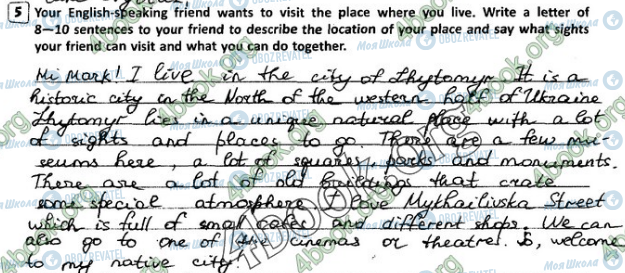 5 Your English-speaking friend wants to visit the place where you live. Write a letter of
8—10 sentences to your friend to describe the location of your place and say what sights
your friend can visit and what you can do together.
Hi Mark! I live in the city of Zhytomyr. It is a
historic city in the North of the western half of Ukraine
Zhytomyr lies in a unique natural place with a lot
of sights and places to go. There are a few mu-
seums here, a lot of squares, parks and monuments.
There are a lot of old buildings that crate
some special atmosphere. I love Mykhailivska Street
which is full of small cafes and different shops. We can
also go to one of the cinemas or theatres. So, welcome
to my native city!